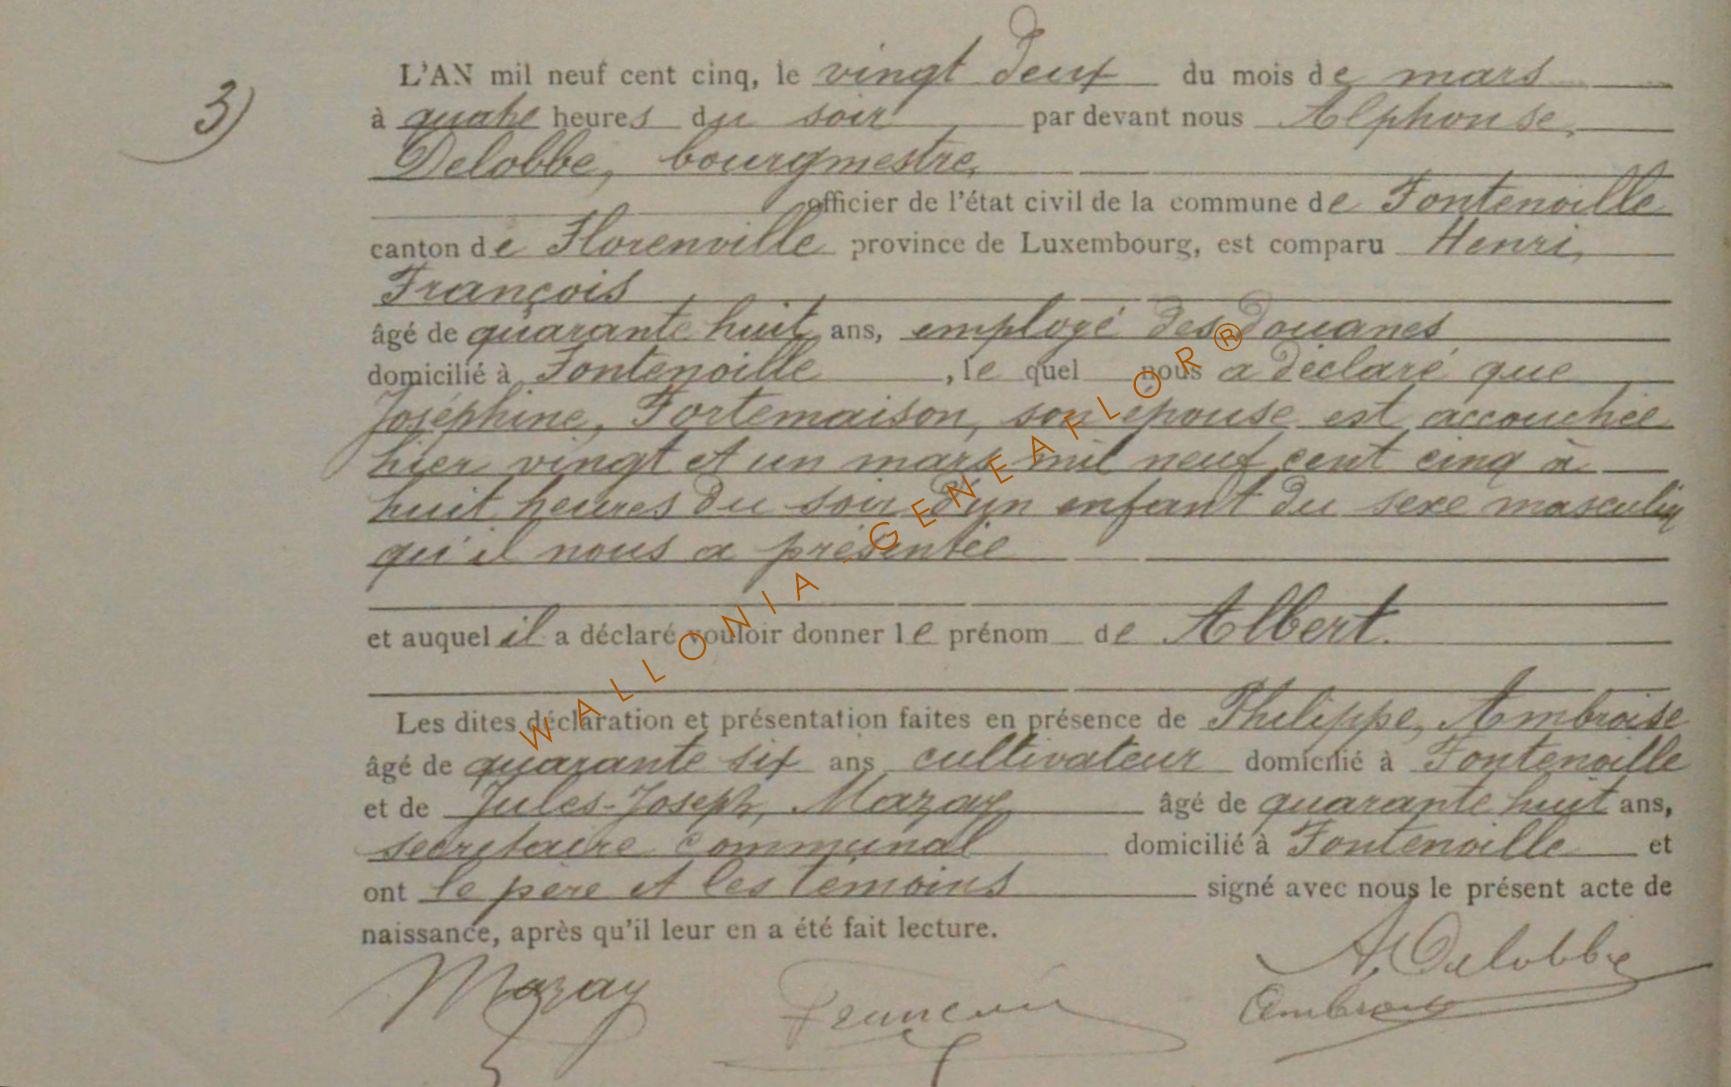 3)
L'AN mil neuf cent cinq, le vingt deux du mois de mars
à quatre heures du soir par devant nous Alphonse,
Delobbe, bourgmestre,
officier de l'état civil de la commune de Fontenoille
canton de Florenville province de Luxembourg, est comparu Henri,
François
âgé de quarante huit ans, employé des douanes
domicilié à Fontenoille, le quel nous a déclaré que
Joséphine, Fortemaison, son épouse est accouchée
hier vingt et un mars mil neuf cent cinq à
huit heures du soir d'un enfant du sexe masculin
qu'il nous a présentée
et auquel il a déclaré vouloir donner le prénom de Albert.
Les dites déclaration et présentation faites en présence de Philippe, Ambroise
âgé de quarante six ans cultivateur domicilié à Fontenoille
et de Jules-Joseph, Mazay âgé de quarante huit ans,
secrétaire communal domicilié à Fontenoille et
ont le père et les témoins signé avec nous le présent acte de
naissance, après qu'il leur en a été fait lecture.
A. Delobbe
Mazay François Ambroise
WALLONIA - GENEAFLOR®